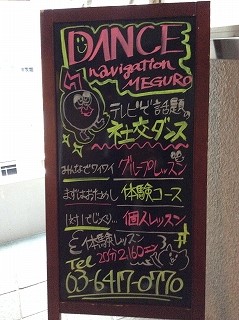 DANCE
navigation
MEGURO
テレビで話題の
社交ダンス
みんなでワイワイ グループレッスン
まずはおためし 体験コース
個人レッスン
体験レッスン
25分 2,160
Tel
03-6417-0770